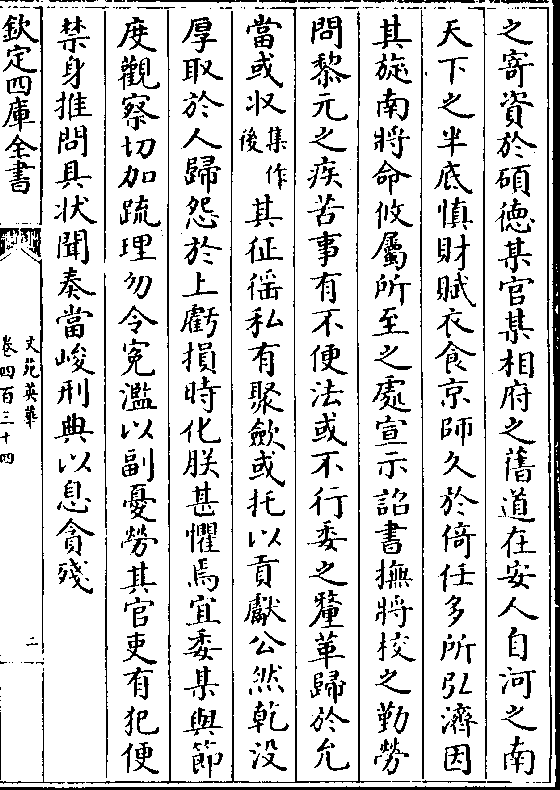 之寄資於碩德某官某相府之舊道在安人自河之南
天下之半底慎財賦衣食京師久於倚任多所弘濟因
其旋南將命攸屬所至之處宣示詔書撫將校之勤勞
問黎元之疾苦事有不便法或不行委之釐革歸於允
當或收集作後其征徭私有聚斂或托以貢獻公然乾没
厚取於人歸怨於上虧損時化朕甚懼焉宜委某與節
度觀察切加疏理勿令寃濫以副憂勞其官吏有犯便
禁身推問具狀聞奏當峻刑典以息貪殘
欽定四庫全書
文苑英華
卷四百三十四
二